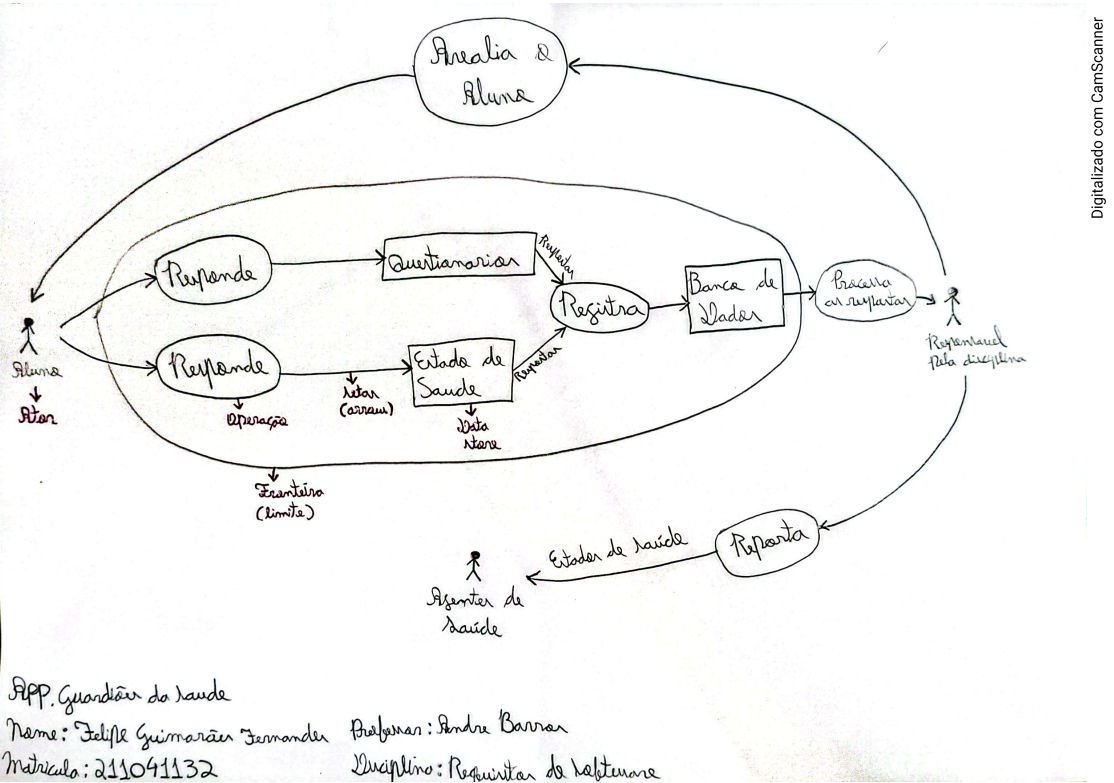 Avalia o
Aluno
Digitalizado com CamScanner
Responde
Questionarios
Respostas
Registra
Banco de
Dados
Processa
as respostas
Responsavel
Pela disciplina
Aluno
Ator
Responde
Operação
setas
(arrow)
Estado de
Saude
Respostas
Data
store
Fronteira
(limite)
Estados de saúde
Reporta
Agentes de
Saúde
APP. Guardiões da saude
Nome: Felipe Guimarães Fernandes Professor: Andre Barros
Matricula: 211041132 Disciplina: Requisitos de software